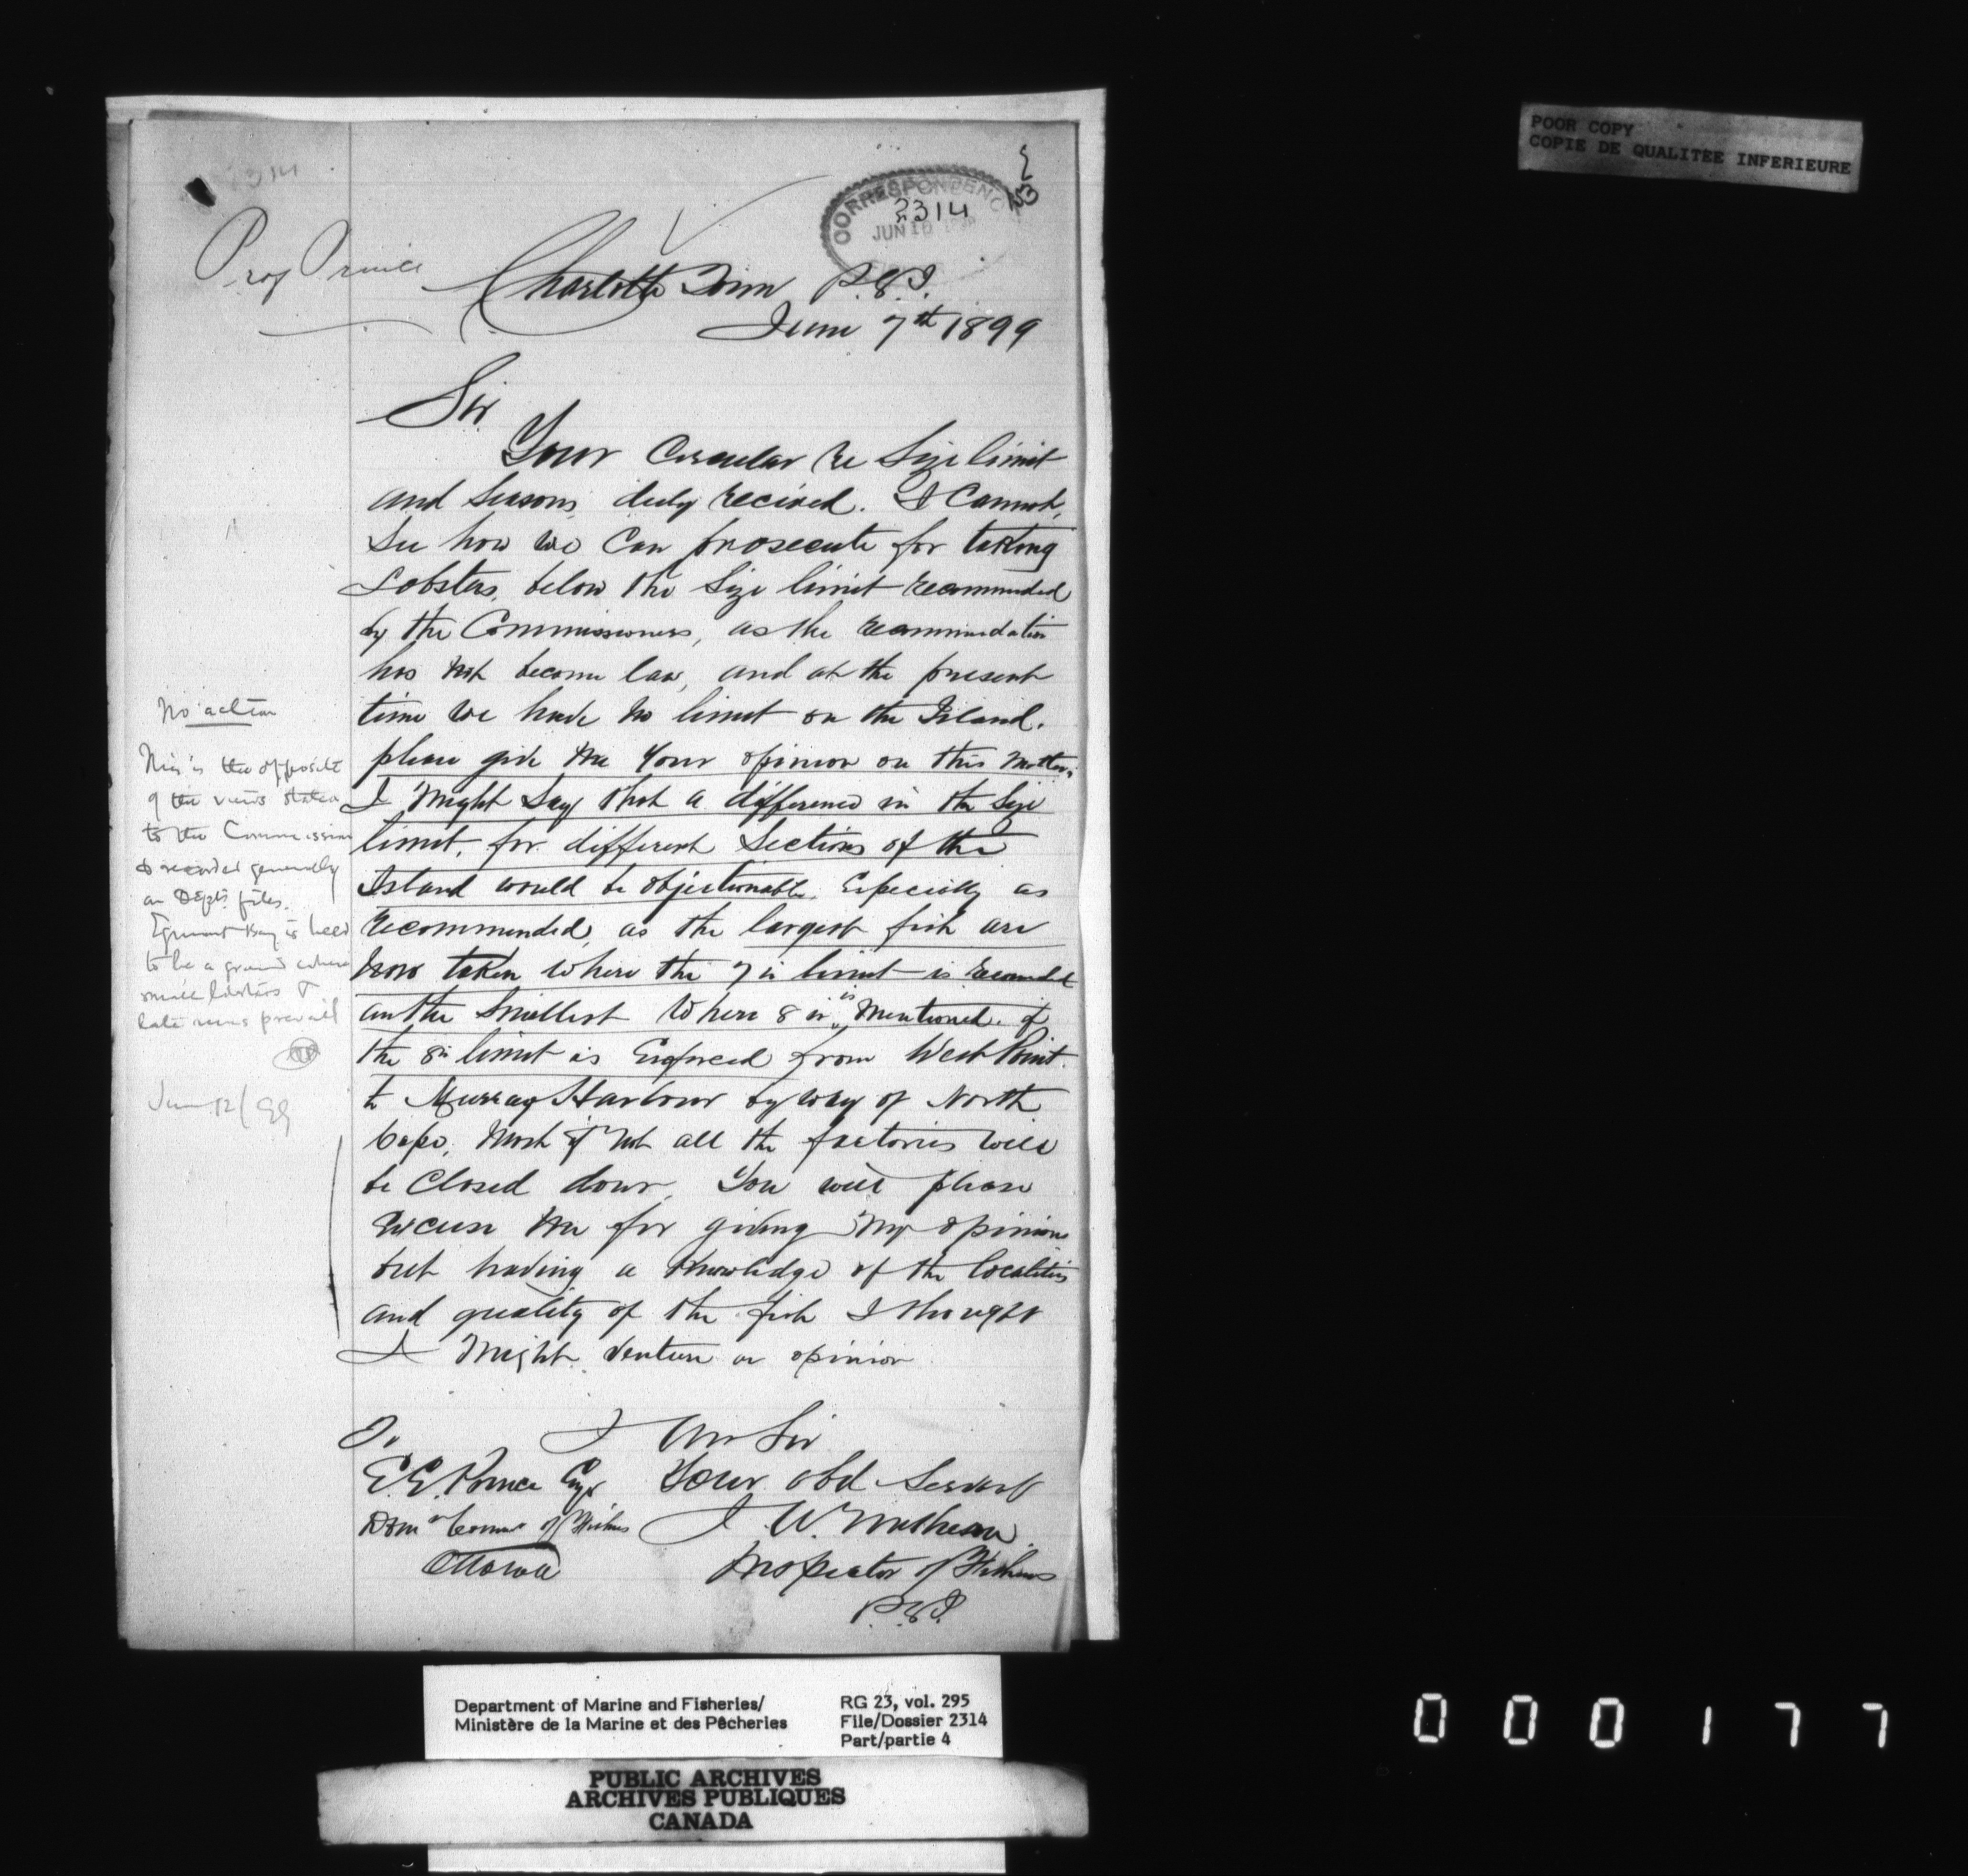 POOR COPY
COPIE DE QUALITEE INFERIEURE
2314
CORRESPONDENC
2314
JUN 10
Prof Prince
Charlotte Town P.E.I.
June 7th 1899
Sir
Your Circular re Size limit
and Seasons, duly recived. I Cannot,
See how we Can prosecute for taking
Lobsters, below the Size limit recommended
by the Commissioners, as the recommendation
has not become law, and at the present
time we have no limit on the Island.
please give me Your opinion on this matter.
I might Say that a difference in the Size
limit, for different Sections of the
Island would be objectionable, Especially as
recommended, as the largest fish are
now taken where the 7 in limit is recommended
an the Smallest Where 8 in is Mentioned. if
the 8 in limit is Enforced from West Point
to Murray Harbour by way of North
Cape, Most if not all the factories will
be Closed down, You will please
Excuse me for giving my opinion
but having a Knowledge of the localities
and quality of the fish I thought
I Might Venture an opinion
No action
This is the opposite
of the views stated
to the Commission
& recorded generally
on Dept. files.
Egmont Bay is held
to be a ground where
small lobsters &
late runs prevail
June 12/99
To I Am Sir
E.E. Prince Esqr Your obd Servant
Domn Commr of Fisheries J. W. Matheson
Ottawa Inspector of Fisheries
P.E.I.
Department of Marine and Fisheries/
Ministère de la Marine et des Pêcheries
RG 23, vol. 295
File/Dossier 2314
Part/partie 4
PUBLIC ARCHIVES
ARCHIVES PUBLIQUES
CANADA
000177